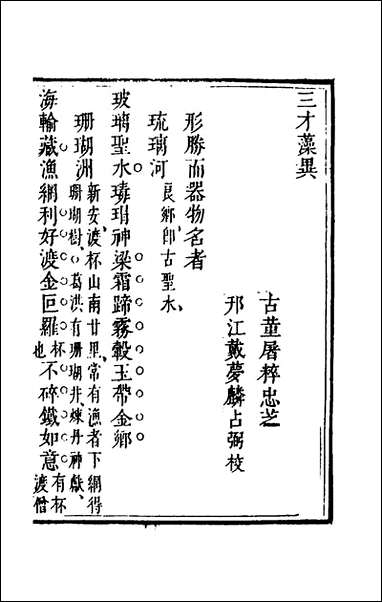 三才藻異
古董屠粹忠芝
邗江戴夢麟占弼校
形勝而器物名者
琉璃河良鄉卽古聖水
玻璃聖水瑇瑁神梁霜蹄霧縠玉帶金鄉
珊瑚洲新安渡杯山南廿里常有漁者下網得
珊瑚樹葛洪有珊瑚井煉丹神獻
海輸藏漁網利好渡金叵羅杯不碎鐵如意有杯
也渡僧